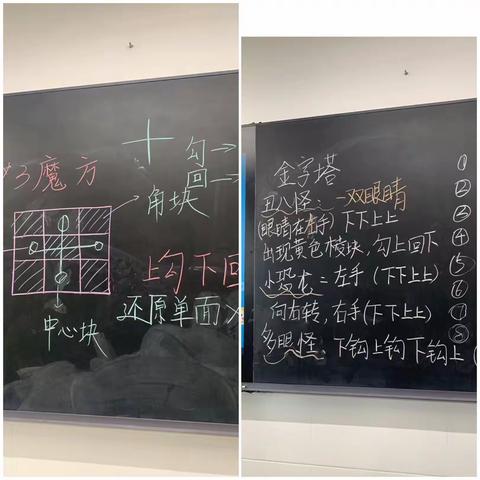 勾→
回→
3魔方
角块
上勾下回
还原单面
中心块
金字塔
丑八怪:一双眼睛
(眼睛在右手)下下上上
出现黄色棱块,勾上回下
小恐龙=左手(下下上上)
向右转,右手(下下上上)
多眼怪:下钩上钩下钩上
①
②
③
④
⑤
⑥
⑦
⑧